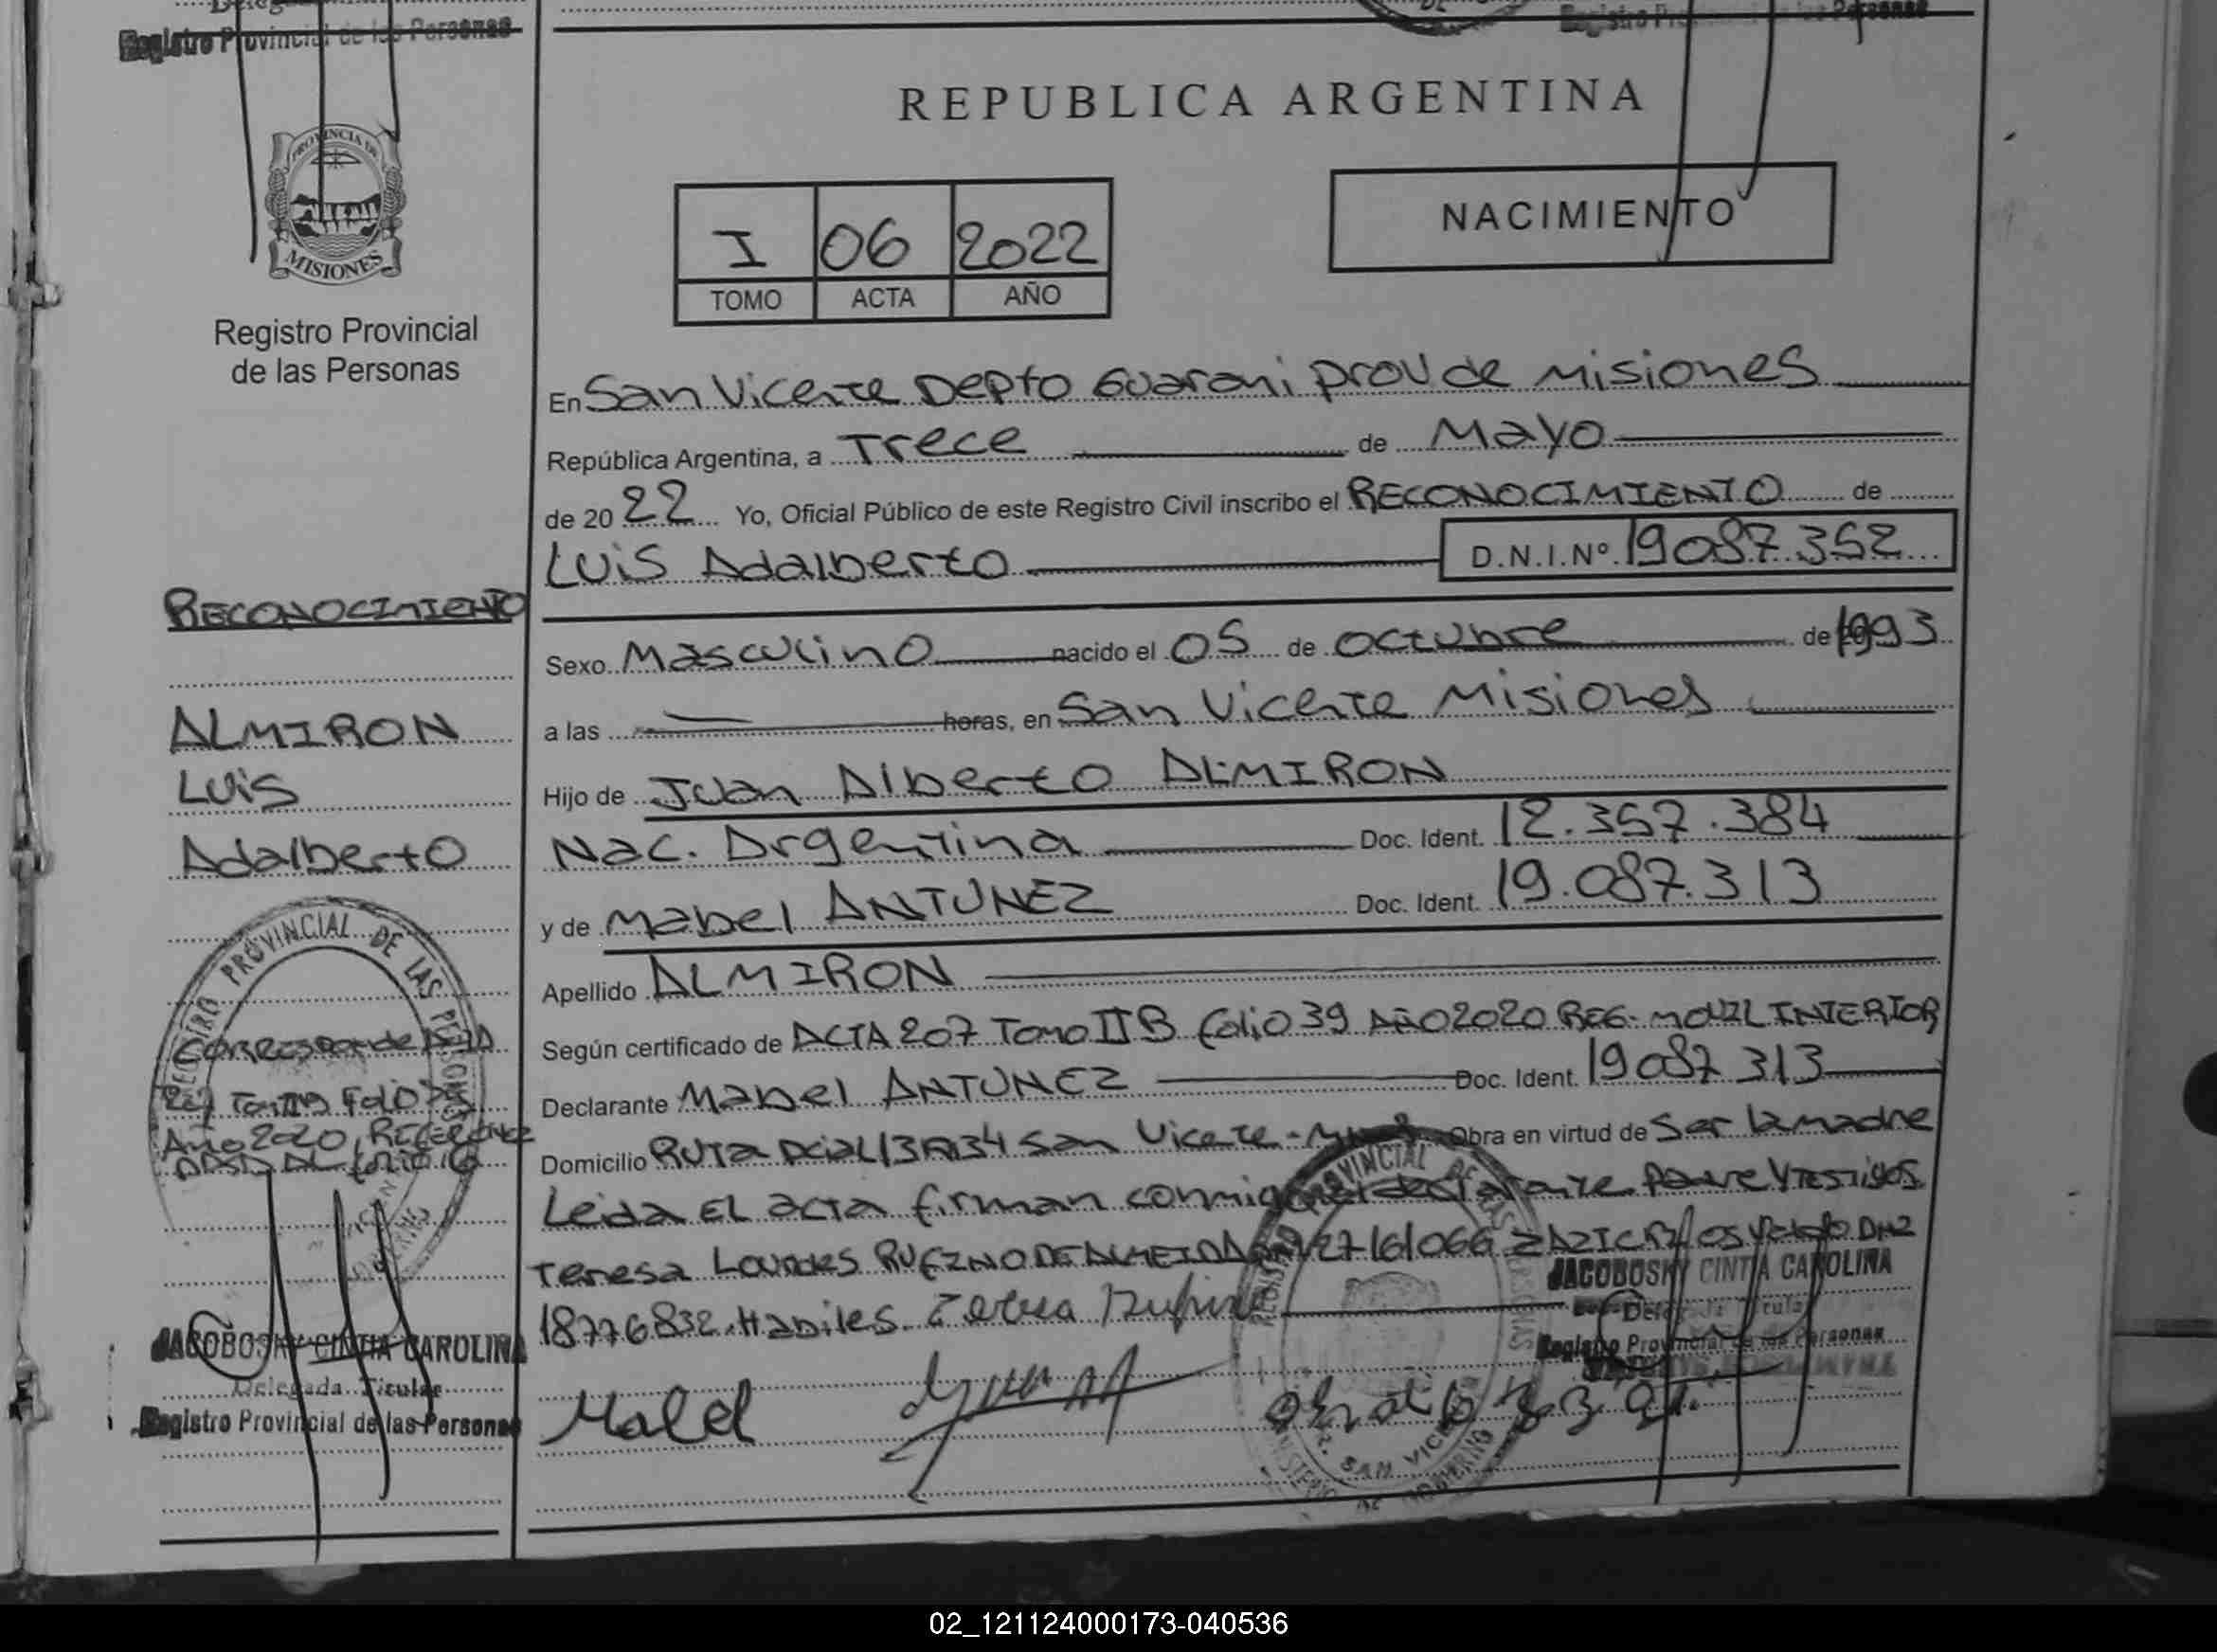 Registro Provincial de las Personas
REPUBLICA ARGENTINA
PROVINCIA DE
MISIONES
Registro Provincial
de las Personas
I 06 2022
TOMO ACTA AÑO
NACIMIENTO
En San Vicente Depto Guarani prov de Misiones
República Argentina, a Trece de Mayo
de 2022 Yo, Oficial Público de este Registro Civil inscribo el RECONOCIMIENTO de
Luis Adalberto D.N.I.Nº 19087.352
RECONOCIMIENTO
Sexo Masculino nacido el 05 de octubre de 1993
a las horas, en San Vicente Misiones
ALMIRON
Luis
Adalberto
Hijo de Juan Alberto ALMIRON
Nac. Argentina Doc. Ident. 12.357.384
y de Mabel ANTUNEZ Doc. Ident. 19.087.313
Apellido ALMIRON
Según certificado de ACTA 207 Tomo II B folio 39 AÑO 2020 REG. MOVIL INTERIOR
Declarante Mabel ANTUNEZ Doc. Ident. 19087313
Domicilio Ruta Pcial 13 San Vicente Obra en virtud de Ser la madre
Leida El acta firman conmigo declarante Padre y Testigos
Teresa Lourdes RUFINO DE ALMEIDA
18776832. Habiles.
REGISTRO PROVINCIAL DE LAS PERSONAS
Corresponde Acta
207 Folio 39
Año 2020
JACOBOSKY CINTIA CAROLINA
Delegada Titular
Registro Provincial de las Personas
JACOBOSKY CINTIA CAROLINA
Delegada Titular
Registro Provincial de las Personas
SAN VICENTE
Mabel
02_121124000173-040536